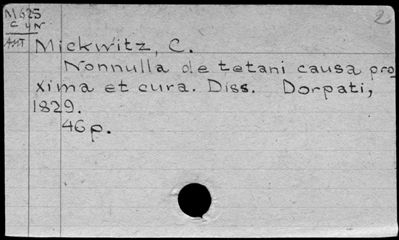 M625
CyN
2
ANT
Mickwitz, C.
Nonnulla de tetani causa pro-
xima et cura. Diss. Dorpati,
1829.
46p.